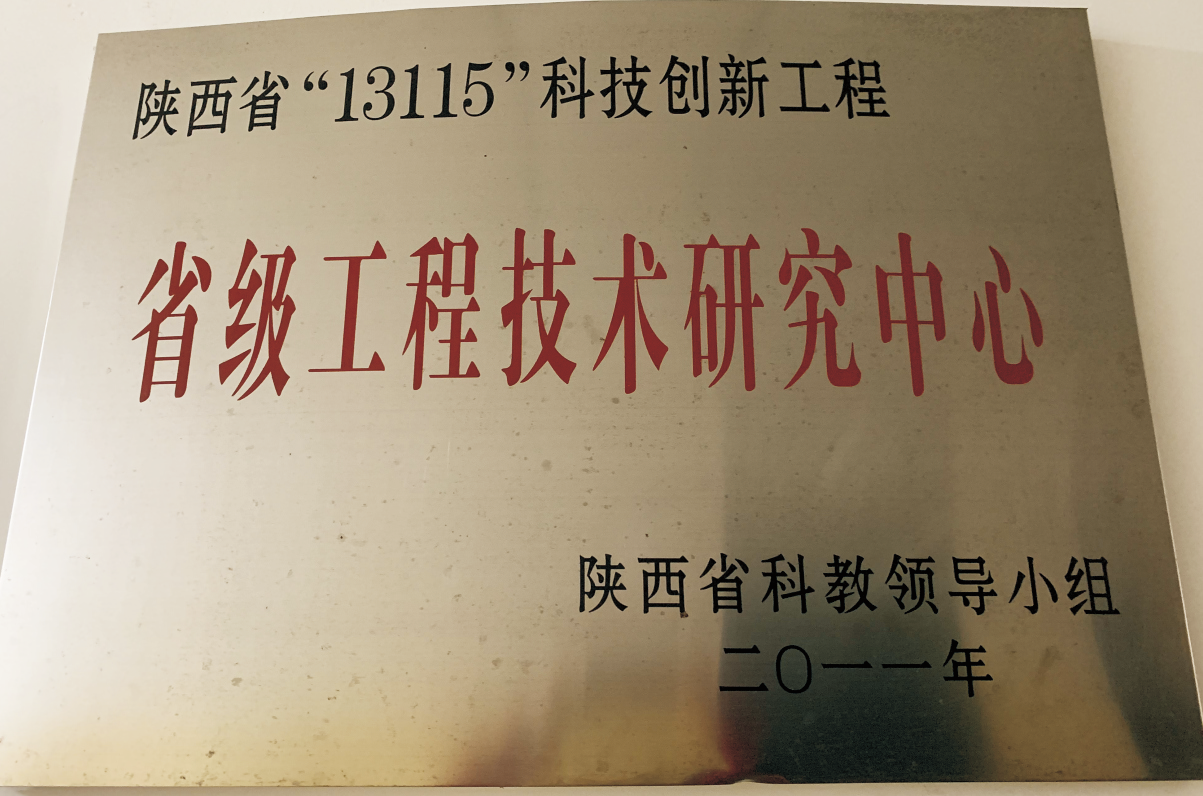 陕西省“13115”科技创新工程
省级工程技术研究中心
陕西省科教领导小组
二〇一一年